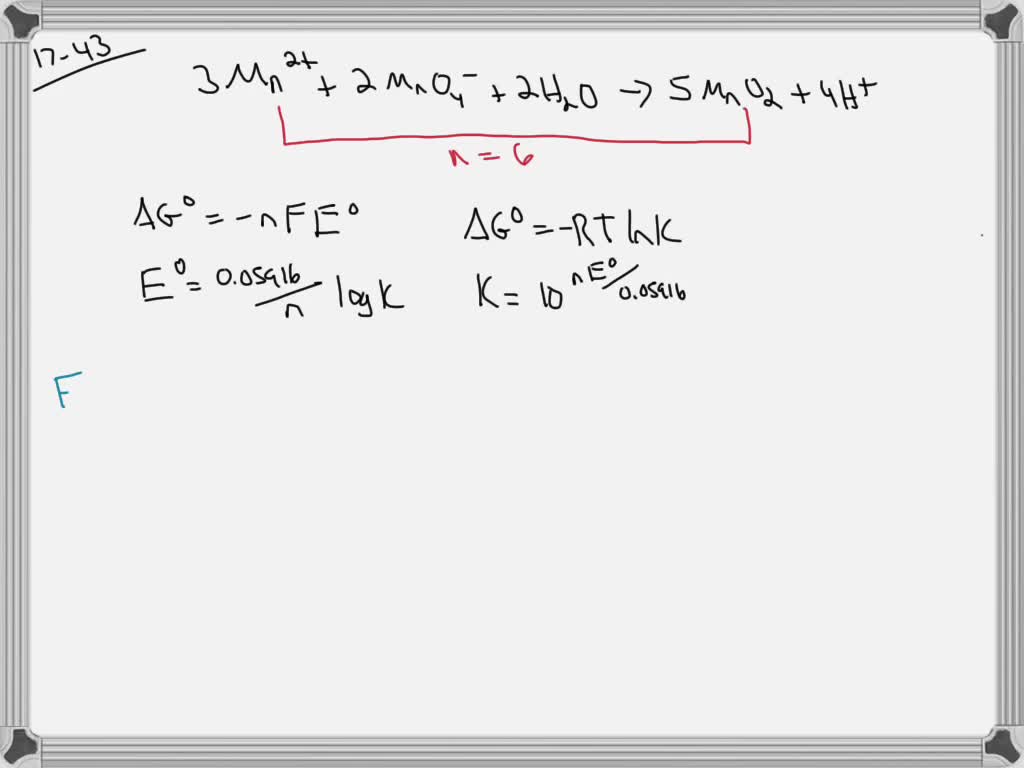 17-43
3Mn²⁺ + 2MnO₄⁻ + 2H₂O → 5MnO₂ + 4H⁺
n = 6
ΔG⁰ = -nFE⁰
ΔG⁰ = -RT lnK
E⁰ = 0.05916/n logK
K = 10^(nE⁰/0.05916)
F